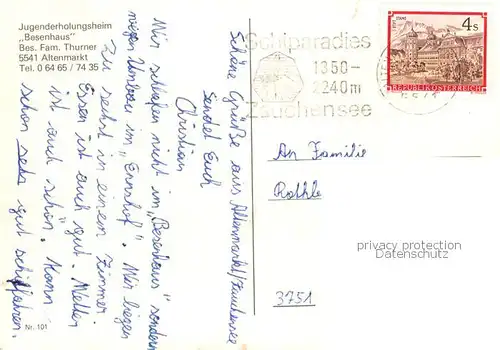 Jugenderholungsheim
„Besenhaus"
Bes. Fam. Thurner
5541 Altenmarkt
Tel. 0 64 65 / 74 35
Schöne Grüße aus Altenmarkt/Zauchensee
sendet Euch
Christian
Wir schlafen nicht im „Besenhaus" sondern
wegen Umbau im „Ennshof". Wir liegen
zu sechst in einem Zimmer
Essen ist auch gut. Wetter
ist auch schön. Kann
schon sehr gut schifahren.
Nr. 101
Schiparadies
1350-
2240m
Zauchensee
STAMS
4s
REPUBLIK ÖSTERREICH
An Familie
3751
privacy protection
Datenschutz